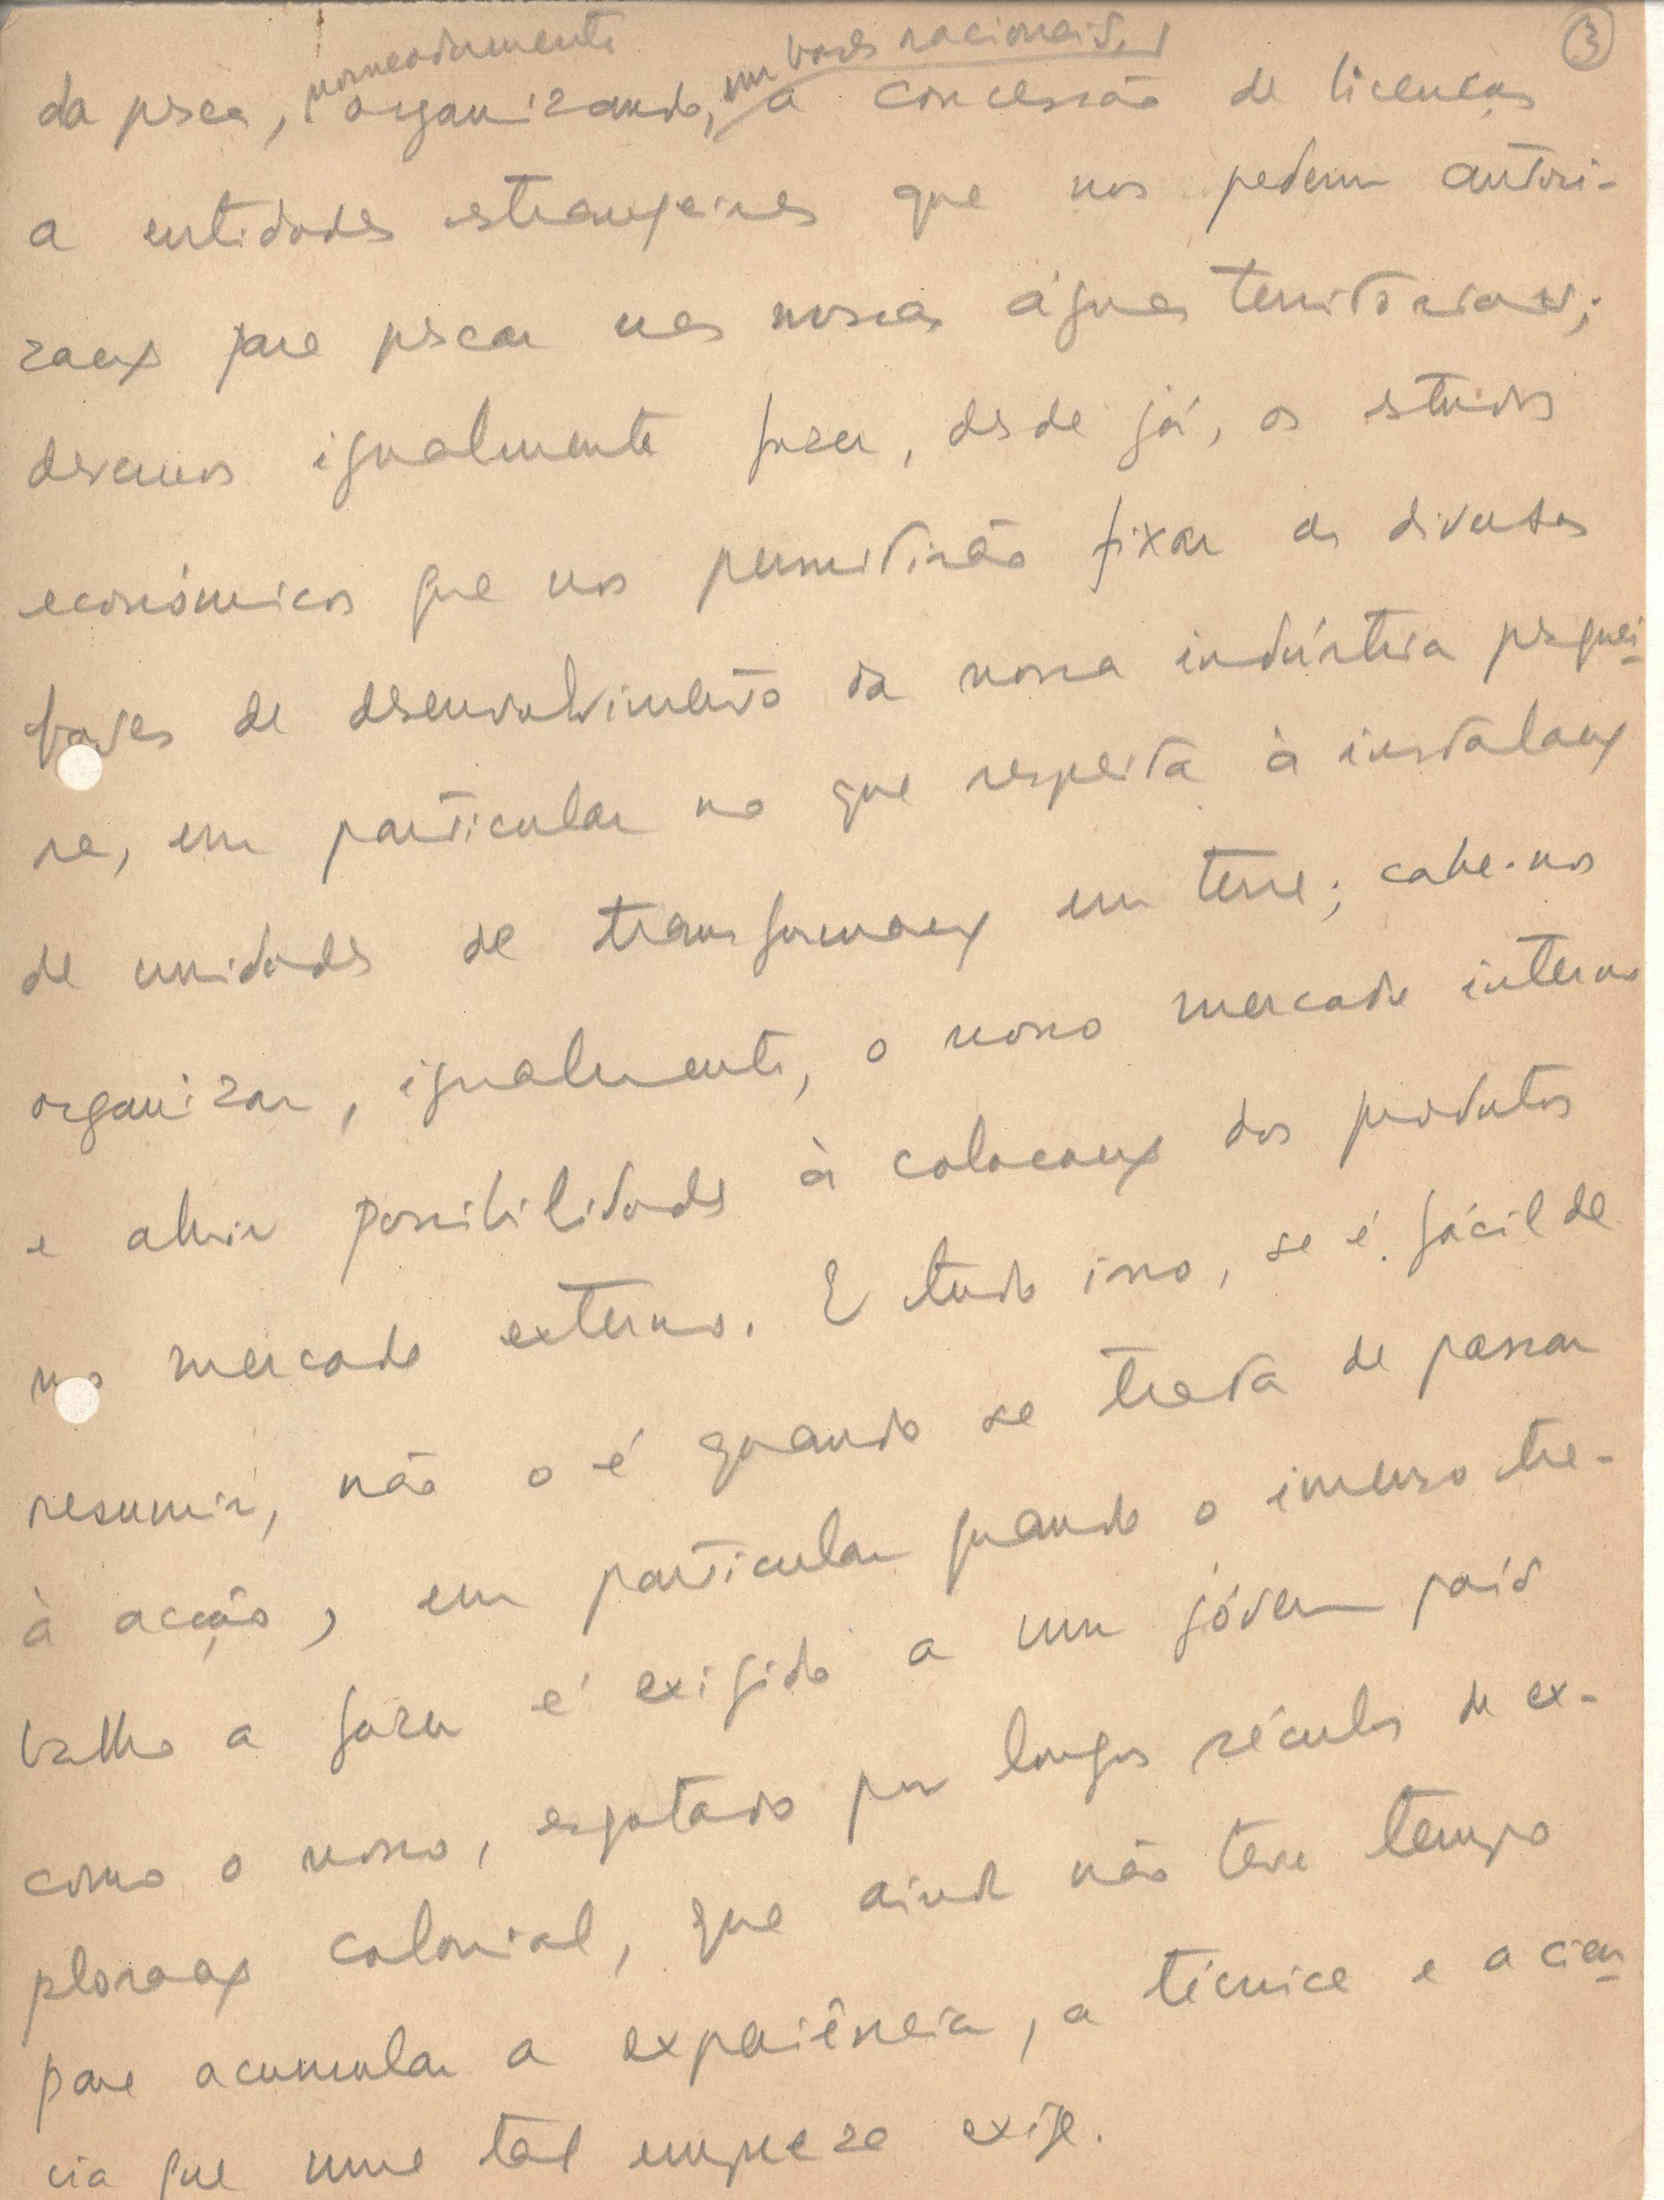 3
nomeadamente em bases racionais,
da pesca, organizando, a concessão de licenças
a entidades estrangeiras que nos pedem autori-
zação para pescar nas nossas águas territoriais;
devemos igualmente fazer, desde já, os estudos
económicos que nos permitirão fixar as diversas
fases de desenvolvimento da nossa indústria pesquei-
ra, em particular no que respeita à instalação
de unidades de transformação em terra; cabe-nos
organizar, igualmente, o nosso mercado interno
e abrir possibilidades à colocação dos produtos
no mercado externo. E tudo isso, se é fácil de
resumir, não o é quando se trata de passar
à acção, em particular quando o imenso tra-
balho a fazer é exigido a um jóvem país
como o nosso, esgotado por longos séculos de ex-
ploração colonial, que ainda não teve tempo
para acumular a experiência, a técnica e a ciên-
cia que uma tal empreza exige.